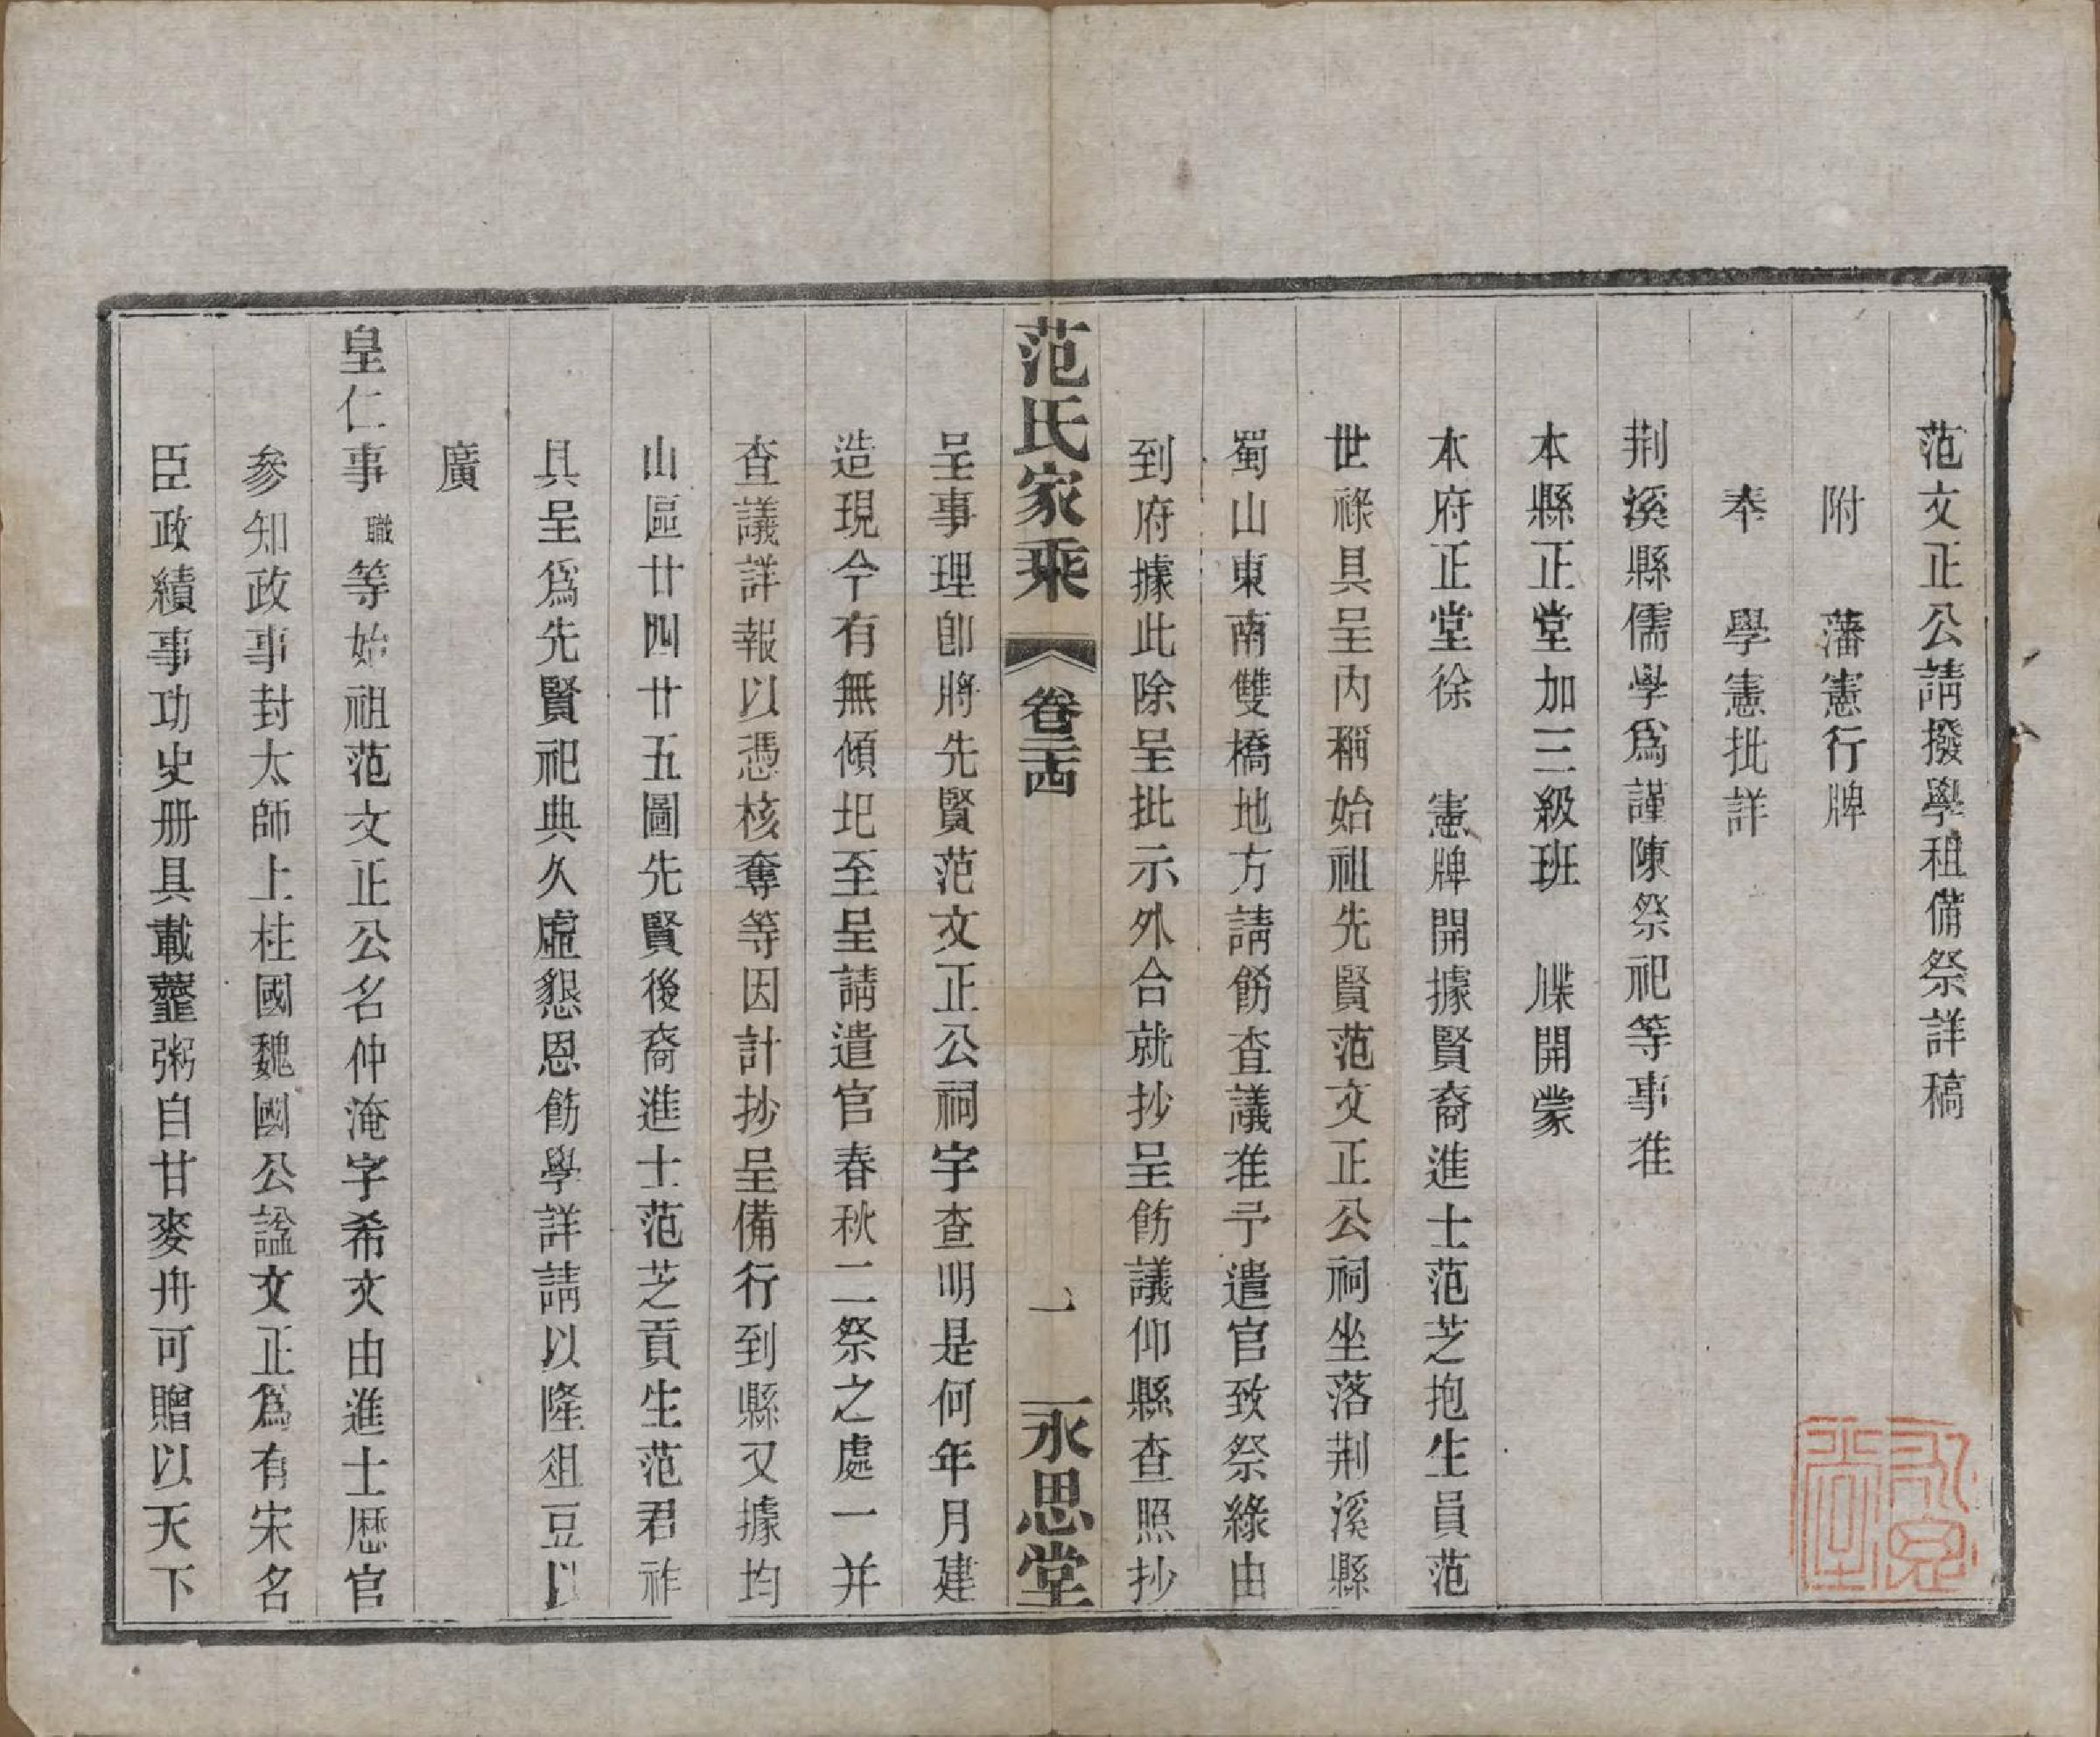 范文正公請撥學租備祭詳稿
附　藩憲行牌
奉　學憲批詳
荆溪縣儒學爲謹陳祭祀等事准
本縣正堂加三級班　牒開蒙
本府正堂徐　憲牌開據賢裔進士范芝抱生員范
世祿具呈内稱始祖先賢范文正公祠坐落荆溪縣
蜀山東南雙橋地方請飭查議准予遣官致祭緣由
到府據此除呈批示外合就抄呈飭議仰縣查照抄
范氏家乘　卷二十四　一　永思堂
呈事理即將先賢范文正公祠宇查明是何年月建
造現今有無傾圮至呈請遣官春秋二祭之處一并
查議詳報以憑核奪等因計抄呈備行到縣又據均
山區廿四廿五圖先賢後裔進士范芝貢生范君祚
具呈爲先賢祀典久虛懇恩飭學詳請以隆俎豆以
廣
皇仁事職等始祖范文正公名仲淹字希文由進士歷官
參知政事封太師上柱國魏國公諡文正爲有宋名
臣政績事功史册具載虀粥自甘麥舟可贈以天下